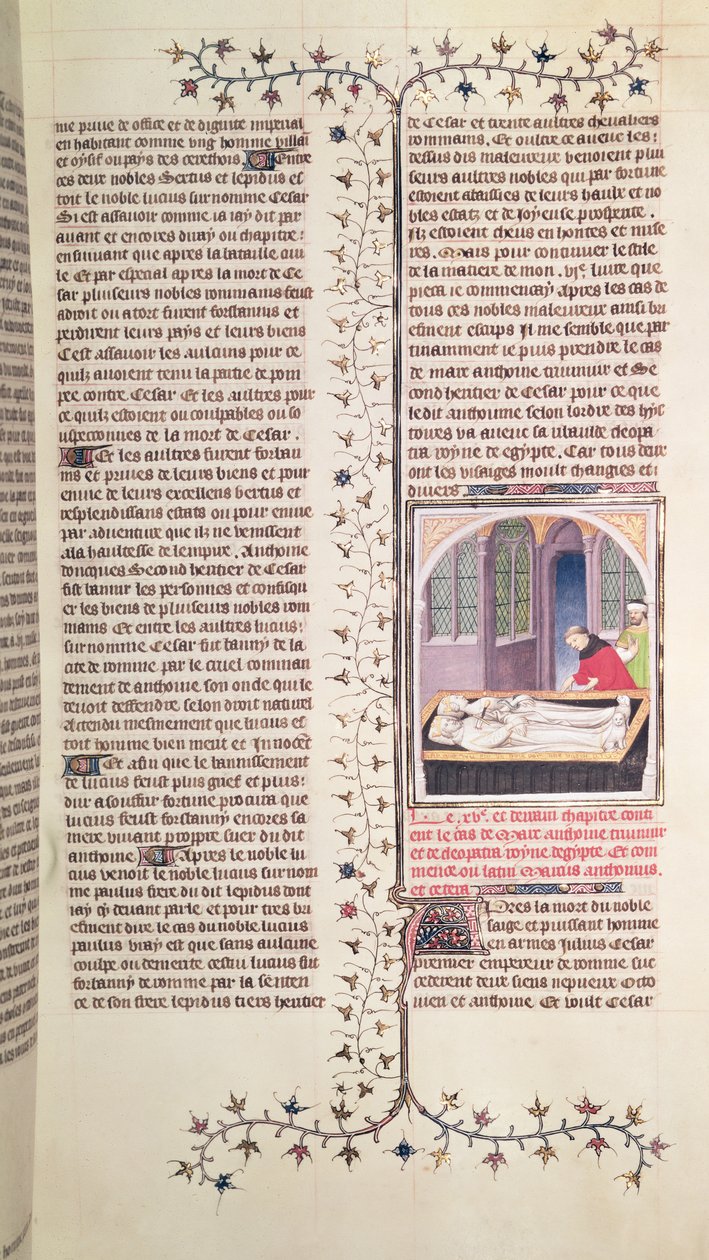 me priue de office et de dignite imperial
en habitant comme vng homme villai
et oysif ou pays des cerethois. Entre
ces deux nobles Sextus et lepidus es
toit le noble lucius sur nomme Cesar
Si est assauoir comme ia iay dit par
auant et encores diray ou chapitre
ensuiuant que apres la bataille ciui
le Et par especial apres la mort de Ce
sar plusieurs nobles rommains feust
a droit ou a tort furent forbannis et
perdirent leurs pays et leurs biens
Cest assauoir les aulcuns pour ce
quilz auoient tenu la partie de pom
pee contre Cesar Et les aultres pour
ce quilz estoient ou coulpables ou so
uspeconnes de la mort de Cesar.
Et les aultres furent forban
nis et priues de leurs biens et pour
enuie de leurs excellens vertus et
resplendissans estats ou pour enuie
par aduenture que ilz ne venissent
a la haultesse de lempire. Anthoine
doncques Second heritier de Cesar
fist bannir les personnes et confisqu
er les biens de plusieurs nobles rom
mains Et entre les aultres lucius
surnomme Cesar fut banny de la
cite de romme par le cruel comman
dement de anthoine son oncle qui le
deuoit deffendre selon droit naturel
Actendu mesmement que lucius es
toit homme bien meur et Innocent
Et afin que le bannissement
de lucius feust plus grief et plus
dur a souffrir fortune procura que
lucius feust forbanny encores sa
mere viuant propre suer du dit
anthoine. Apres le noble lu
cius venoit le noble lucius surnom
me paulus frere du dit lepidus dont
iay cy deuant parle et pour tres bri
efment dire le cas du noble lucius
paulus vray est que sans aulcune
coulpe ou demerite cestui lucius fut
forbanny de romme par la senten
ce de son frere lepidus tiers heritier
de Cesar et trente aultres cheualiers
rommains. Et oultre ce auec les
dessus dis maleureux venoient plu
seurs aultres nobles qui par fortune
estoient abaissies de leurs haulz et no
bles estatz et de Joyeuse prosperite.
Ilz estoient cheus en hontes et mise
res. Mais pour continuer le stile
de la matiere de mon .vj.e liure que
pieca ie commencay Apres les cas de
tous ces nobles maleureux ainsi bri
efment escrips Il me semble que par
tinamment ie puis prendre le cas
de marc anthoine triumuir et Se
cond heritier de Cesar pour ce que
le dit anthoine selon lordre des hys
toires va auecq sa ribaulde cleopa
tra royne de egypte. Car tous deux
ont les visaiges moult changies et
diuers
Le .xv.e et derrain chapitre conti
ent le cas de Marc anthoine triumuir
et de cleopatra royne degypte Et com
mence ou latin Marcus anthonius.
et cetera
Apres la mort du noble
saige et puissant homme
en armes Julius Cesar
premier empereur de romme suc
cederent deux siens nepueux Octo
uien et anthoine Et voult Cesar